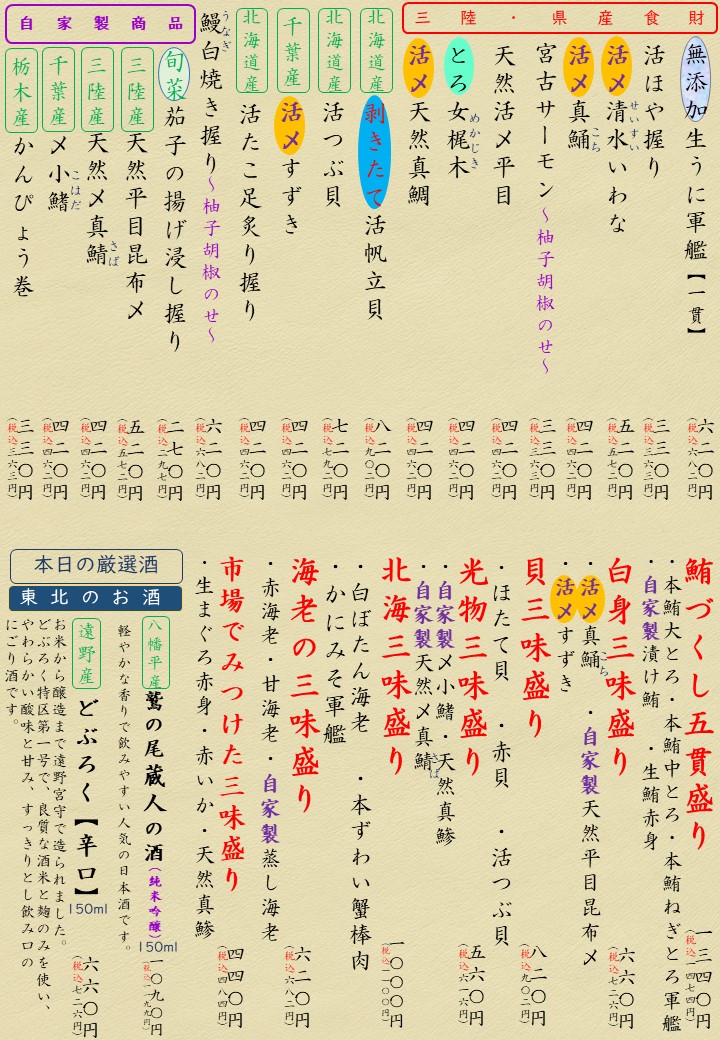 三陸・県産食財
無添加生うに軍艦【一貫】
六二〇円
(税込六八二円)
活ほや握り
三三〇円
(税込三六三円)
活〆清水いわな
せいすい
五二〇円
(税込五七二円)
活〆真鯒
こち
四二〇円
(税込四六二円)
宮古サーモン～柚子胡椒のせ～
三三〇円
(税込三六三円)
天然活〆平目
四二〇円
(税込四六二円)
とろ女梶木
めかじき
四二〇円
(税込四六二円)
活〆天然真鯛
四二〇円
(税込四六二円)
北海道産
剥きたて活帆立貝
八二〇円
(税込九〇二円)
北海道産
活つぶ貝
七二〇円
(税込七九二円)
千葉産
活〆すずき
四二〇円
(税込四六二円)
北海道産
活たこ足炙り握り
四二〇円
(税込四六二円)
鰻白焼き握り～柚子胡椒のせ～
うなぎ
六二〇円
(税込六八二円)
自家製商品
旬菜茄子の揚げ浸し握り
二七〇円
(税込二九七円)
三陸産
天然平目昆布〆
五二〇円
(税込五七二円)
三陸産
天然〆真鯖
さば
四二〇円
(税込四六二円)
千葉産
〆小鰭
こはだ
四二〇円
(税込四六二円)
栃木産
かんぴょう巻
三三〇円
(税込三六三円)
鮪づくし五貫盛り
一三四〇円
(税込一四七四円)
・本鮪大とろ・本鮪中とろ・本鮪ねぎとろ軍艦
・自家製漬け鮪　・生鮪赤身
白身三味盛り
六六〇円
(税込七二六円)
・活〆真鯒　・自家製天然平目昆布〆
こち
・活〆すずき
貝三味盛り
八二〇円
(税込九〇二円)
・ほたて貝　・赤貝　・活つぶ貝
光物三味盛り
五六〇円
(税込六一六円)
・自家製〆小鰭・天然真鯵
・自家製天然〆真鯖
さば
北海三味盛り
一〇〇〇円
(税込一一〇〇円)
・白ぼたん海老　・本ずわい蟹棒肉
・かにみそ軍艦
海老の三味盛り
六二〇円
(税込六八二円)
・赤海老・甘海老・自家製蒸し海老
市場でみつけた三味盛り
四四〇円
(税込四八四円)
・生まぐろ赤身・赤いか・天然真鯵
本日の厳選酒
東北のお酒
八幡平産
鷲の尾蔵人の酒(純米吟醸)
150ml
一〇九〇円
(税込一一九九円)
軽やかな香りで飲みやすい人気の日本酒です。
遠野産
どぶろく【辛口】
150ml
六六〇円
(税込七二六円)
お米から醸造まで遠野宮守で造られました。
どぶろく特区第一号で、良質な酒米と麹のみを使い、
やわらかい酸味と甘み、すっきりとし飲み口の
にごり酒です。